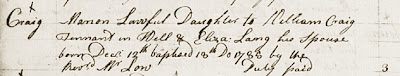 Craig Manon Lawful Daughter to William Craig
Tennant in Well & Eliza: Laing his Spouse
born Decr. 12th baptised 18th Do 1788 by the
Revd. Mr Low Duty paid 3